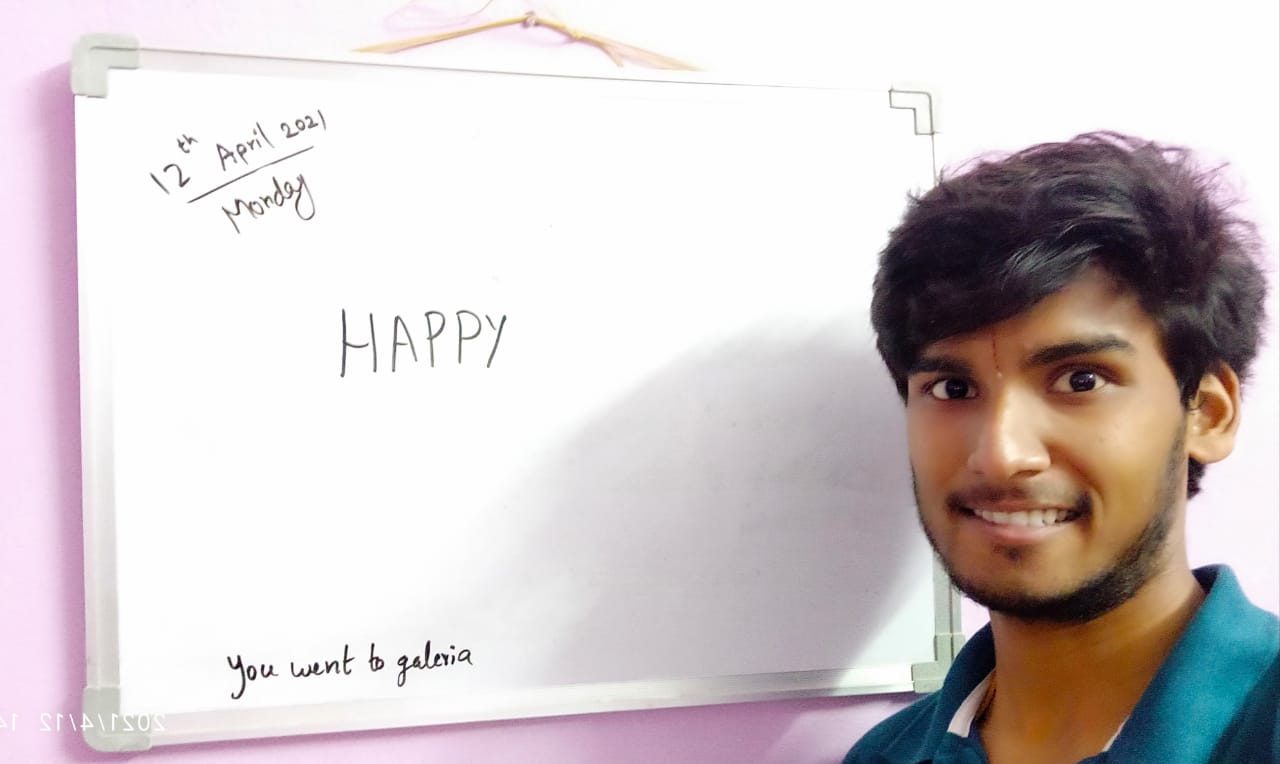 12th April 2021
Monday
HAPPY
You went to galeria
2021/4/12 14